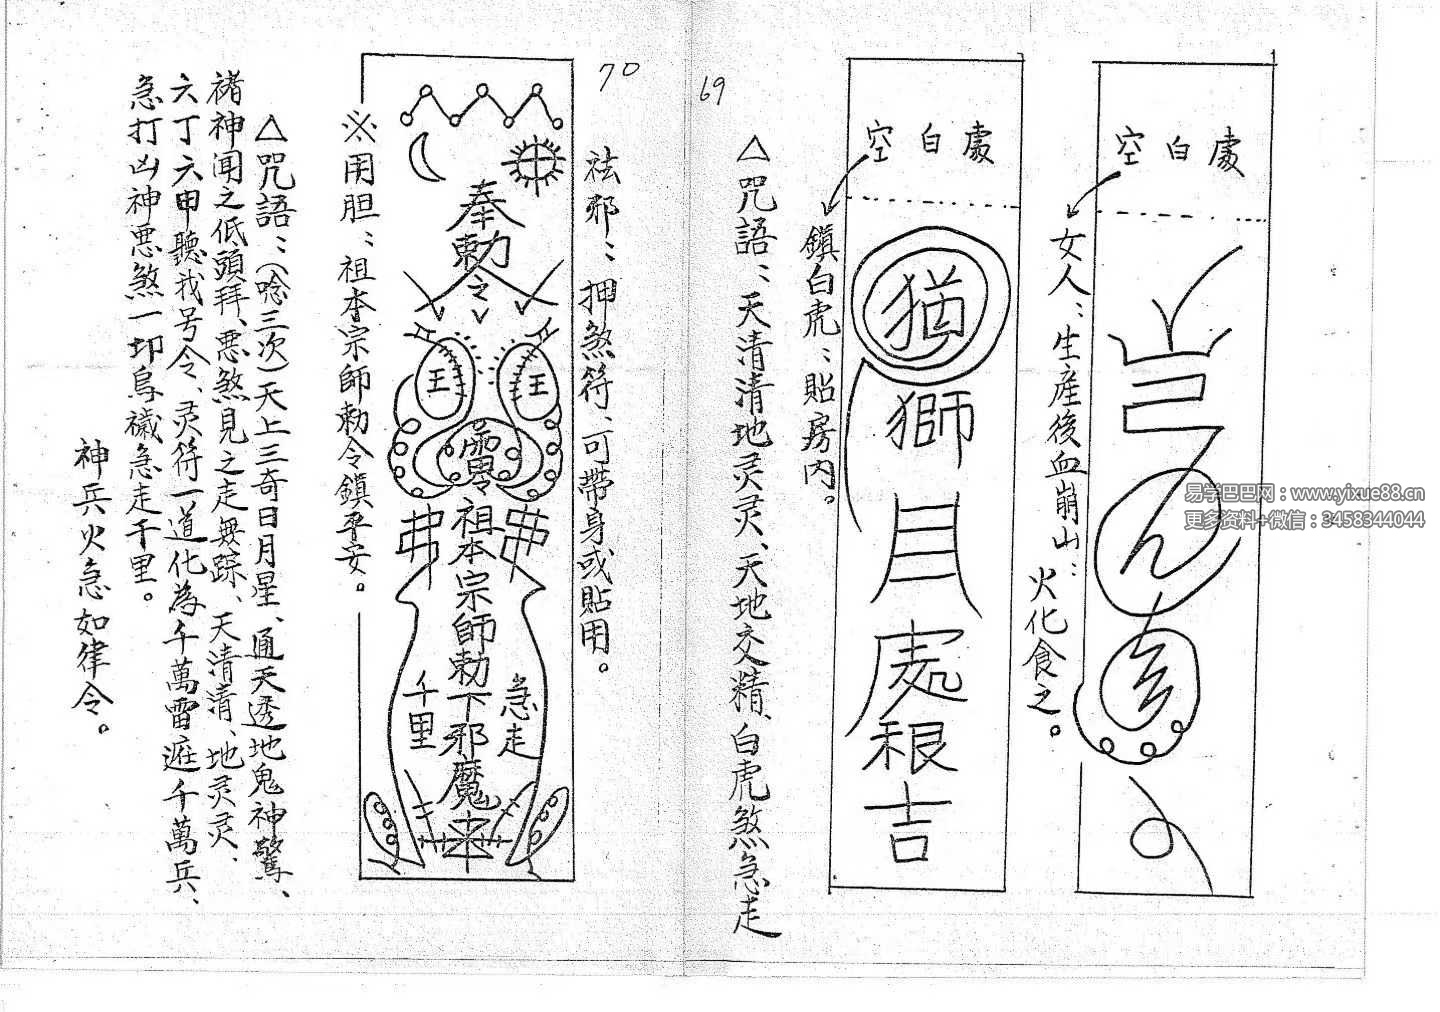 69
空白處
女人：生産後血崩山：火化食之。
空白處
鎮白虎：貼房內。
獅
根吉
△咒語：天清清地灵灵、天地交精、白虎煞急走
70
祛邪：押煞符、可帶身或貼用。
奉勅令
王
王
靈
祖本宗師勅下邪魔
急走
千里
※用胆：祖本宗師勅令鎮平安。
△咒語：（唸三次）天上三奇日月星、通天透地鬼神驚、
神闻之低頭拜、悪煞見之走無踪、天清清、地灵灵、
六丁六甲聽我号令、灵符一道化為千萬雷
千萬兵、
急打凶神悪煞一切
急走千里。
神兵火急如律令。
易学巴巴网：www.yixue88.cn
更多资料+微信：3458344044